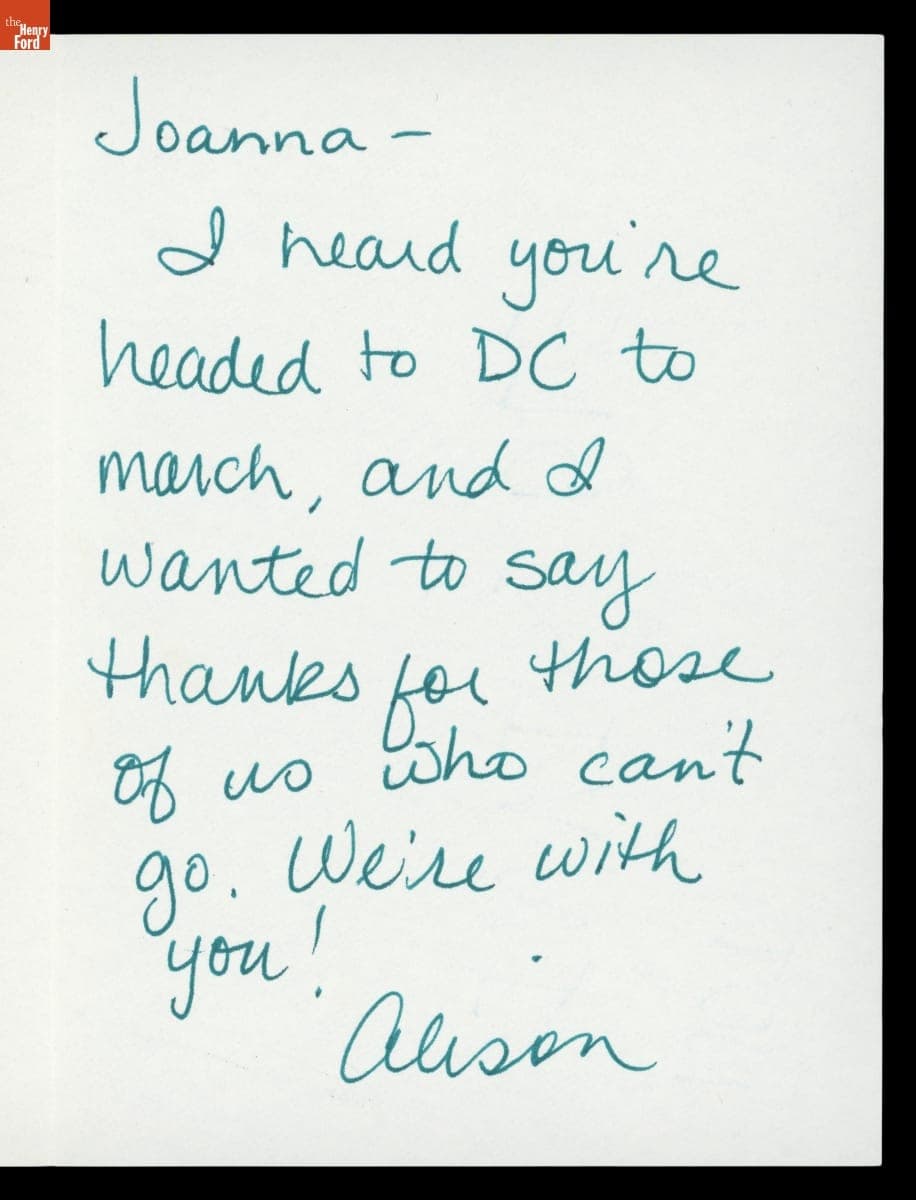 the
Henry
Ford
Joanna –
I heard you're
headed to DC to
march, and I
wanted to say
thanks for those
of us who can't
go. We're with
you!
Alison